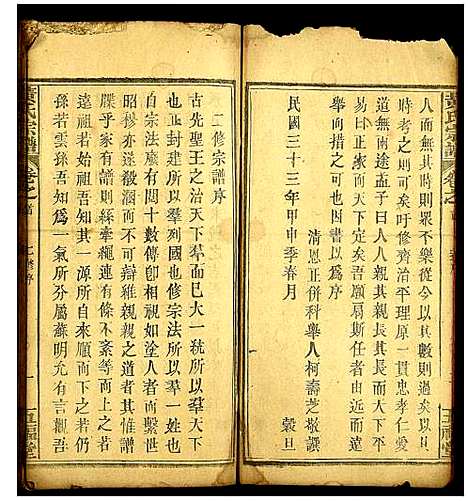 人而無其時則眾不樂從今以其數則過矣以其
時考之則可矣吁修齊治平理原一貫忠孝仁愛
道無兩途孟子曰人人親其親長其長而天下平
易曰正家而天下定吾願扇斯任者由近而遠
舉而措之書以為序
清恩正併科舉人柯壽芝敬譔
民國三十三年甲申季春月 穀旦
二修宗譜序
古先聖王之治天下羣而已大一統所以羣天下
也正封建所以羣列國也修宗法所以羣一姓也
自宗法廢有閱十數傳卽相視如塗人者而繫世
昭穆亦遂殺溷而不可辯親之道者其惟譜
牒乎家有譜則絲牽繩連有條不紊子若孫仰而
遠祖若始祖吾知其一源所自來願而下之若仍
孫若雲孫吾知為一氣所分屬蘇明允有言觀吾
黃氏宗譜
卷之首
二修序
一
五福堂
黃氏宗譜
卷之首
五福堂